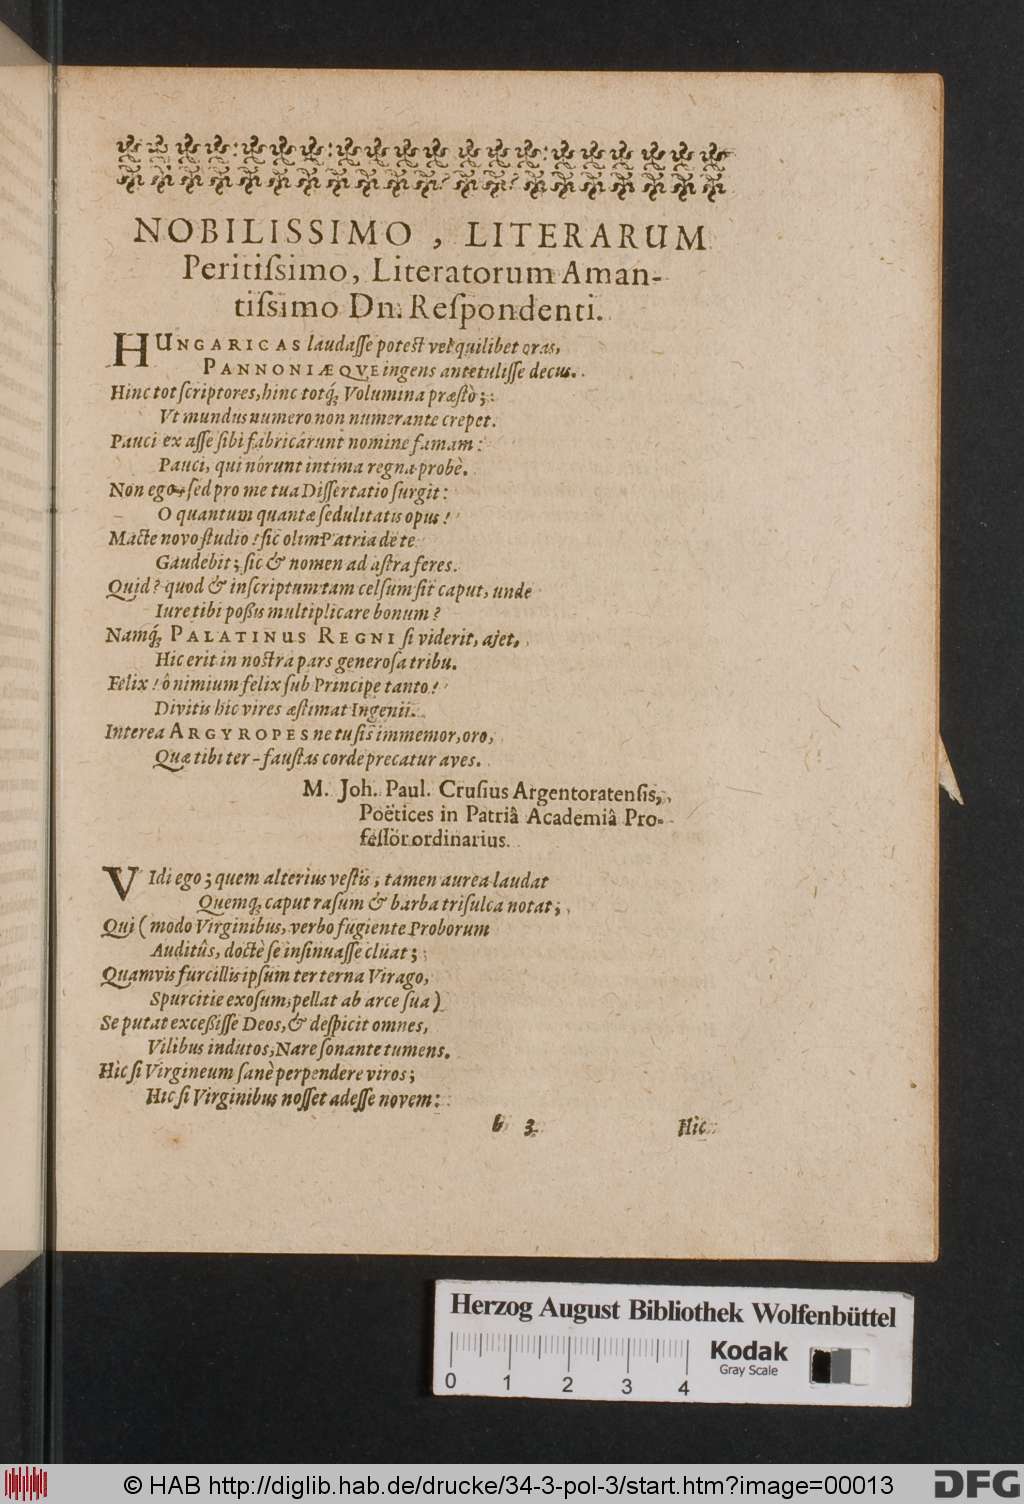 NOBILISSIMO, LITERARUM
Peritiſsimo, Literatorum Aman-
tiſsimo Dn. Reſpondenti.
HUNGARICAS laudaſſe poteſt vel quilibet oras,
PANNONIÆQVE ingens antetuliſſe decus.
Hinc tot ſcriptores, hinc totq́; Volumina præſtò;
Vt mundus numero non numerante crepet.
Pauci ex aſſe ſibi fabricârunt nomine famam:
Pauci, qui nórunt intima regna probè.
Non ego, ſed pro me tua Diſſertatio ſurgit:
O quantum quantæ ſedulitatis opus!
Macte novo ſtudio! ſic olim Patria de te
Gaudebit; ſic & nomen ad aſtra feres.
Quid? quod & inſcriptum tam celſum ſit caput, unde
Iure tibi poßis multiplicare bonum?
Namq́; PALATINUS REGNI ſi viderit, ajet,
Hic erit in noſtra pars generoſa tribu.
Felix! ô nimium felix ſub Principe tanto!
Divitis hic vires æſtimat Ingenii.
Interea ARGYROPES ne tu ſis immemor, oro,
Quæ tibi ter-fauſtas corde precatur aves.
M. Joh. Paul. Cruſius Argentoratenſis,
Poëtices in Patriâ Academiâ Pro-
feſſor ordinarius.
VIdi ego; quem alterius veſtis, tamen aurea laudat
Quemq; caput raſum & barba triſulca notat;
Qui (modo Virginibus, verbo fugiente Proborum
Auditûs, doctè ſe inſinuaſſe cluat;
Quamvis furcillis ipſum ter terna Virago,
Spurcitie exoſum, pellat ab arce ſua)
Se putat exceßiſſe Deos, & deſpicit omnes,
Vilibus indutos, Nare ſonante tumens.
Hic ſi Virgineum ſanè perpendere viros;
Hic ſi Virginibus noſſet adeſſe novem:
b 3
Hic
Herzog August Bibliothek Wolfenbüttel
0 1 2 3 4
Kodak
Gray Scale
© HAB http://diglib.hab.de/drucke/34-3-pol-3/start.htm?image=00013
DFG